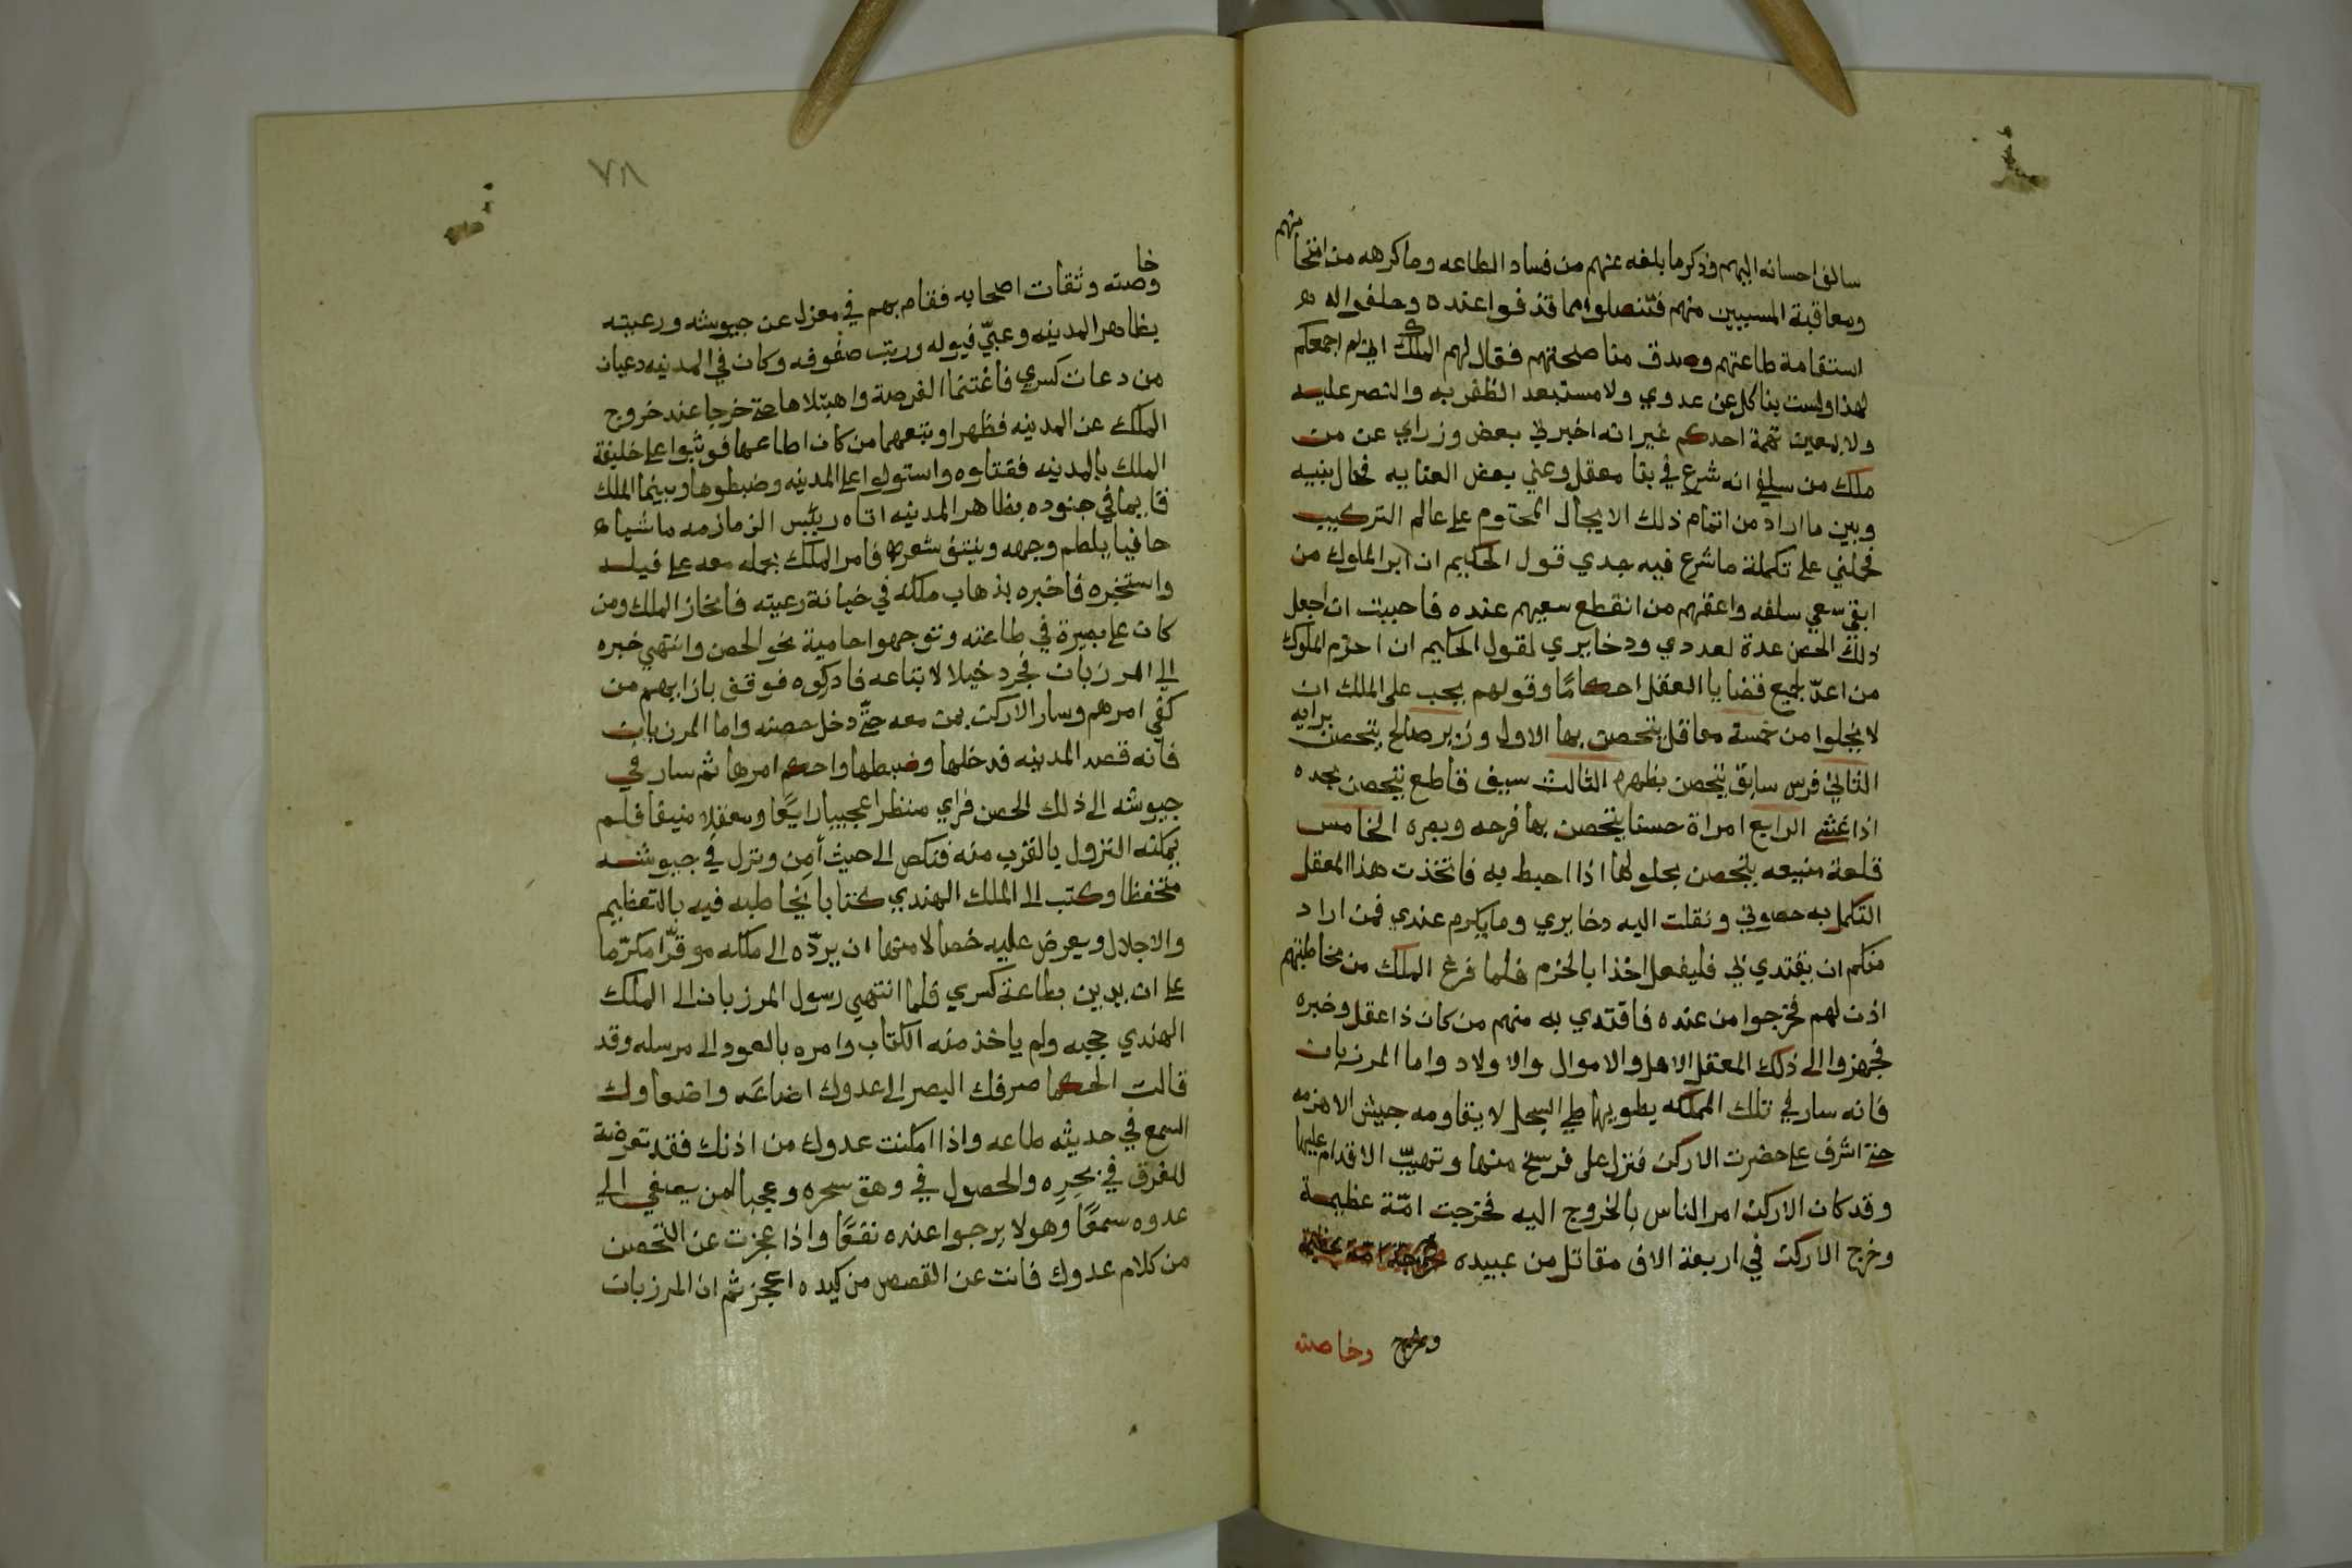 سالف احسانه اليهم وذكر ما بلغه عنهم من فساد الطاعه وما كرهه من امتحانهم
ومعاقبة المسيين منهم فتنصلوا مما قذفوا عنده وحلفوا له
استقامة طاعتهم وصدق مناصحتهم فقال لهم الملك اني لم اجمعكم
لهذا ولست بناكل عن عدوي ولا مستبعد الظفر به والنصر عليه
ولا بمعين تهمة احدكم غير انه اخبرني بعض وزراي عن من
ملك من سلفي انه شرع في بنا معقل وعني بعض العنايه فحال بنيه
وبين ما اراد من اتمام ذلك الايجال المحتوم على عالم التركيب
فحملني على تكملة ما شرع فيه جدي قول الحكيم ان ابر الملوك من
ابقى سعي سلفه واعقهم من انقطع سعيهم عنده فاحببت ان اجعل
ذلك الحصن عدة لعددي ودخايري لقول الحكيم ان احزم الملوك
من اعدّ لجميع قضايا العقل احكامًا وقولهم يجب على الملك ان
لا يخلوا من خمسة معاقل يتحصن بها الاول وزير صالح يتحصن برايه
الثاني فرس سابق يتحصن بظهره الثالث سيف قاطع يتحصن بحده
اذا غشي الرابع امراة حسنا يتحصن بها فرجه وبصره الخامس
قلعة منيعه يتحصن بحلولها اذا احيط به فاتخذت هذا المعقل
لتكمل به حصوني ونقلت اليه دخايري وما يكرم عندي فمن اراد
منكم ان يقتدي بي فليفعل اخذا بالحزم فلما فرغ الملك من مخاطبتهم
اذن لهم فخرجوا من عنده فاقتدي به منهم من كان ذا عقل وخبره
فجهزوا الى ذلك المعقل الاهل والاموال والاولاد واما المرزبان
فانه سار في تلك المملكه يطويها طي السجل لا يقاومه جيش الا هزمه
حتى اشرف على حضرت الاركن فنزل على فرسخ منها وتهيّب الاقدام عليها
وقد كان الاركن امر الناس بالخروج اليه فخرجت امّة عظيمة
وخرج الاركن في اربعة الاف مقاتل من عبيده
وخرج وخاصته
٧٨
وخاصته وثقات اصحابه فقام بهم في معزل عن جيوشه ورعيته
بظاهر المدينه وعبّي فيوله ورتب صفوفه وكان في المدينه دعيان
من دعات كسري فاغتنما الفرصة واهتبلاها حتى خرجا عند خروج
الملك عن المدينه فظهرا وتبعهما من كان اطاعهما فوثبوا على خليفة
الملك بالمدينه فقتلوه واستولوا على المدينه وضبطوها وبينما الملك
قايما في جنوده بظاهر المدينه اتاه رييس الزمازمه ماشيا
حافيا يلطم وجهه وينتف شعره فامر الملك بحمله معه على فيله
واستخبره فاخبره بذهاب ملكه في خيانة رعيته فانحاز الملك ومن
كان على بصيرة في طاعته وتوجهوا حامية نحو الحصن وانتهي خبره
الى المرزبان فجرد خيلا لاتباعه فادركوه فوقف بازايهم من
كفي امرهم وسار الاركن بمن معه حتّى دخل حصنه واما المرزبان
فانه قصد المدينه فدخلها وضبطها واحكم امرها ثم سار في
جيوشه الى ذلك الحصن فراي منظرا عجيبا رايعًا ومعقلا منيفا فلم
يمكنه النزول بالقرب منه فنكص الى حيث أمِن ونزل في جيوشه
متحفظا وكتب الى الملك الهندي كتابا يخاطبه فيه بالتعظيم
والاجلال ويعرض عليه خصالا منها ان يردّه الى ملكه موقّرا مكرّما
على ان يدين بطاعة كسري فلما انتهي رسول المرزبان الى الملك
الهندي حجبه ولم ياخذ منه الكتاب وامره بالعود الى مرسله وقد
قالت الحكما صرفك البصر الى عدوك اضاعَه
السمع في حديثه طاعه واذا امكنت عدوك من اذنك فقد تعرضت
للغرق في بحرِه والحصول في وهق سحره وعجبا لمن يصغي الى
عدوه سمعًا وهو لا يرجوا عنده نفعًا واذا عجزت عن التحصن
من كلام عدوك فانت عن القصص من كيده اعجز ثم ان المرزبان